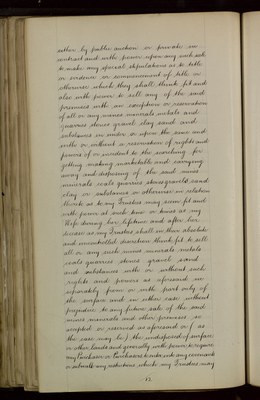 either by public auction or private
contract and with power upon any such sale
to make any special stipulations as to title
or evidence or commencement of title or
otherwise which they shall think fit and
also with power to sell any of the said
premises with an exception or reservation
of all or any mines minerals metals and
quarries stones gravel clay sand and
substances in under or upon the same and
with or without a reservation of rights and
powers of or incident to the searching for
getting making marketable and carrying
away and disposing of the said mines
minerals coals quarries stones gravels sand
clay or substances or otherwise in relation
thereto as to my Trustees may seem fit and
with power at such time or times as my
Wife during her lifetime and after her
decease as my Trustees shall in their absolute
and uncontrolled discretion think fit to sell
all or any such mines minerals metals
coals quarries stones gravel sand
and substances with or without such
rights and powers as aforesaid
separately from or with part only of
the surface and in either case without
prejudice to any future sale of the said
mines minerals and other premises so
excepted or reserved as aforesaid or (as
the case may be) the undisposed of surface
or other lands and generally with power to
my Purchaser or Purchasers to enter into any covenants
or submit to any restrictions which my Trustees may